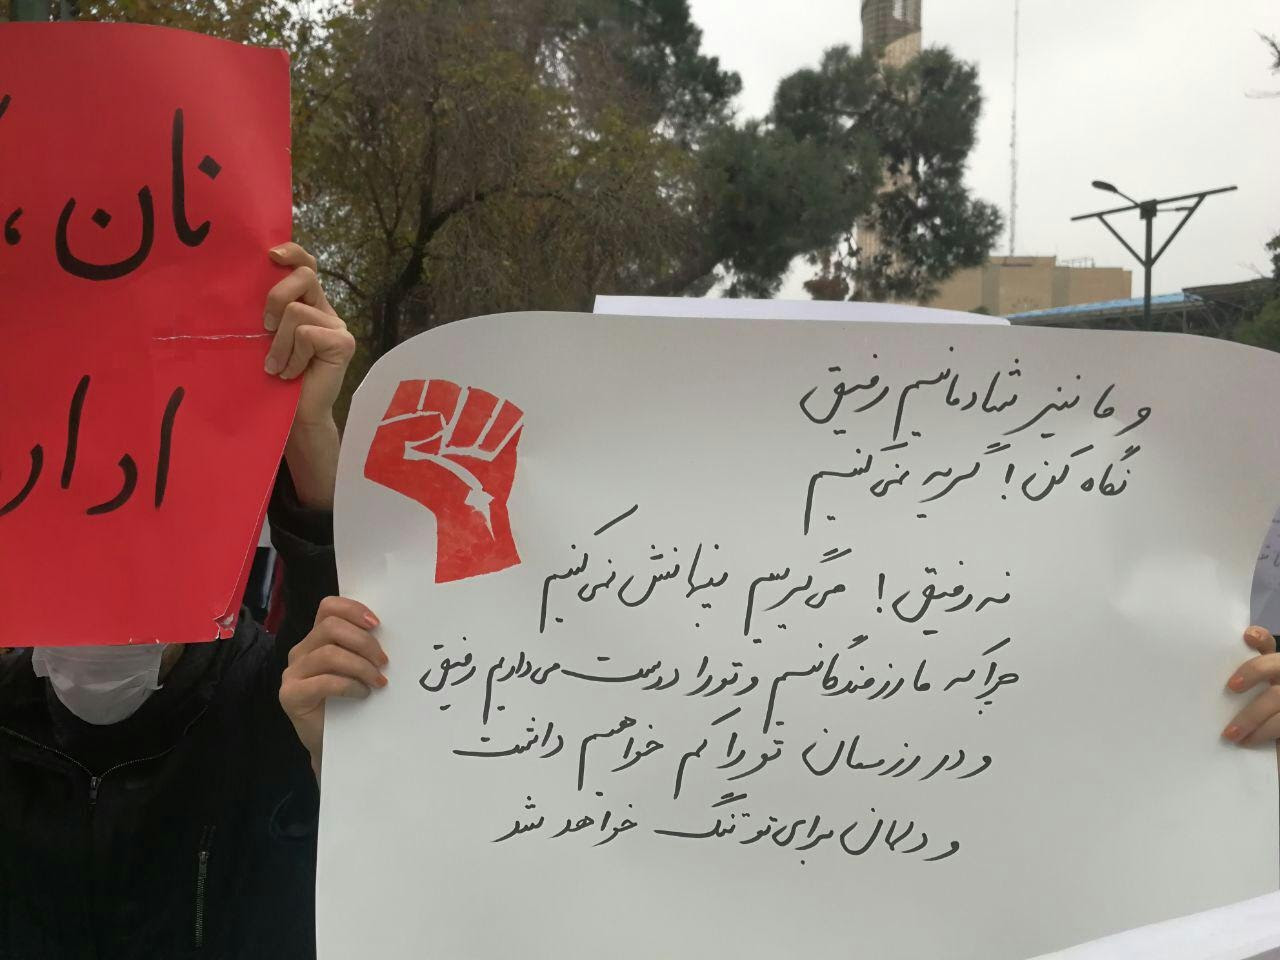 نان ،
ادار
و ما نیز شادمانیم رفیق
نگاه کن! گریه نمی‌کنیم
نه رفیق! می‌گرییم پنهانش نمی‌کنیم
چرا که ما رزمندگانیم و تو را دوست می‌داریم رفیق
و در رزممان تو را کم خواهیم داشت
و دلمان برای تو تنگ خواهد شد